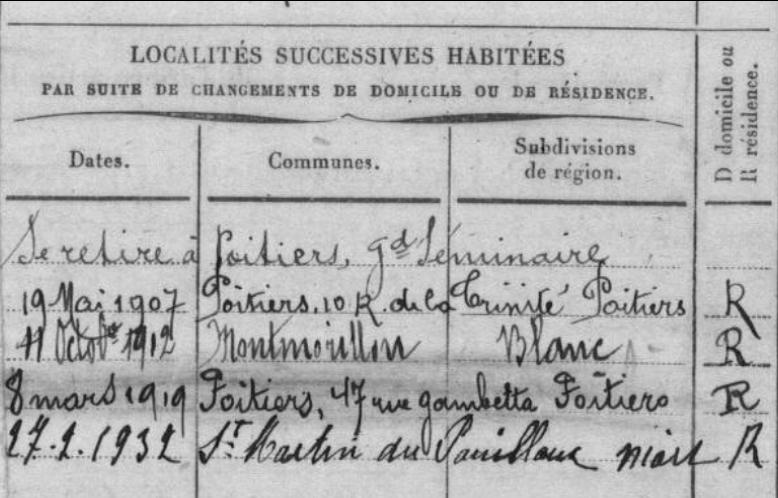 LOCALITÉS SUCCESSIVES HABITÉES
PAR SUITE DE CHANGEMENTS DE DOMICILE OU DE RÉSIDENCE.
D domicile ou
R résidence.
Dates.
Communes.
Subdivisions
de région.
Se retire à Poitiers, gd Séminaire
19 Mai 1907 Poitiers, 10 R. de la Trinité Poitiers R
11 Octobre 1912 Montmorillon Blanc R
8 mars 1919 Poitiers, 47 rue gambetta Poitiers R
27.2.1932 St Martin du Niort R